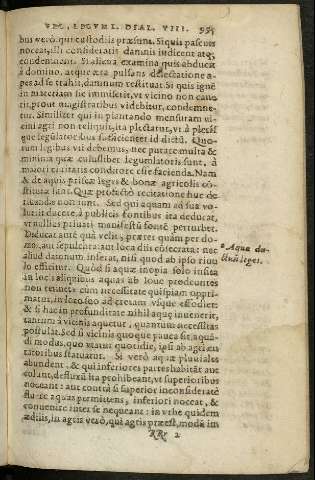 DE LEGVMI. DIAL. VIII.
bus verò qui custodiis præsunt. Si quis pascuis
noceat, illi consideratis damnis iudicent atq;
condemnent. Si alicui examina quis abducat
à domino, atque æra pulsans delectatione a-
pes ad se trahit, damnum restituat. Si quis ignē
in materiam sic immiserit, vt vicino non caue-
tit, prout magistratibus videbitur, condemne-
tur. Similiter qui in plantando mensuram vi-
cini agri non reliquit, ita plectatur, vt à pleris-
que legulatoribus satis dictū. Quo-
rum legibus vti debemus, nec putare multa &
minima quæ cuiuslibet legumlatoris sunt, à
maiori ciuitatis conditore esse facienda. Nam
& de aquis priscæ leges & bonæ agricolis cō-
stitutæ sunt. Quæ profectò recitatione huc de-
nandæ non sunt. Sed qui aquam ad sua vo-
luerit ducere, à publicis fontibus ita deducat,
vt nullius priuati manifestū fontē perturbet.
Deducat autē quà velit, præter quàm per do-
mo, aut sepulcra: aut loca diis cōsecrata: nec
aliud damnum inferat, nisi quod ab ipso riuu-
lo efficitur. Quòd si aquæ inopia solo insita
in locis aliquibus aquas ab Ioue prodeuntes
non retinet: cum necessitate quispiam oppri-
matur, in loco suo ad cretam vsque effodiet:
& si hac in profunditate nihil aquæ inuenerit,
tantum à vicinis aquetur, quantum necessitas
postulat. Sed si vicinis quoque pauca sit, aquā-
di modus, quo vtatur quotidie, ipsi ab agri cu-
ratoribus statuatur. Si verò aquæ pluuiales
abundent, & qui inferiores partes habitāt aut
colunt, defluxū ita prohibeant, vt superioribus
noceant: aut contrà si superior inconsideratè
fluere aquas permittens, inferiori noceat, &
conuenire inter se nequeant: in vrbe quidem
ædilis, in agris verò, qui agris præest, modū im
RRr 2